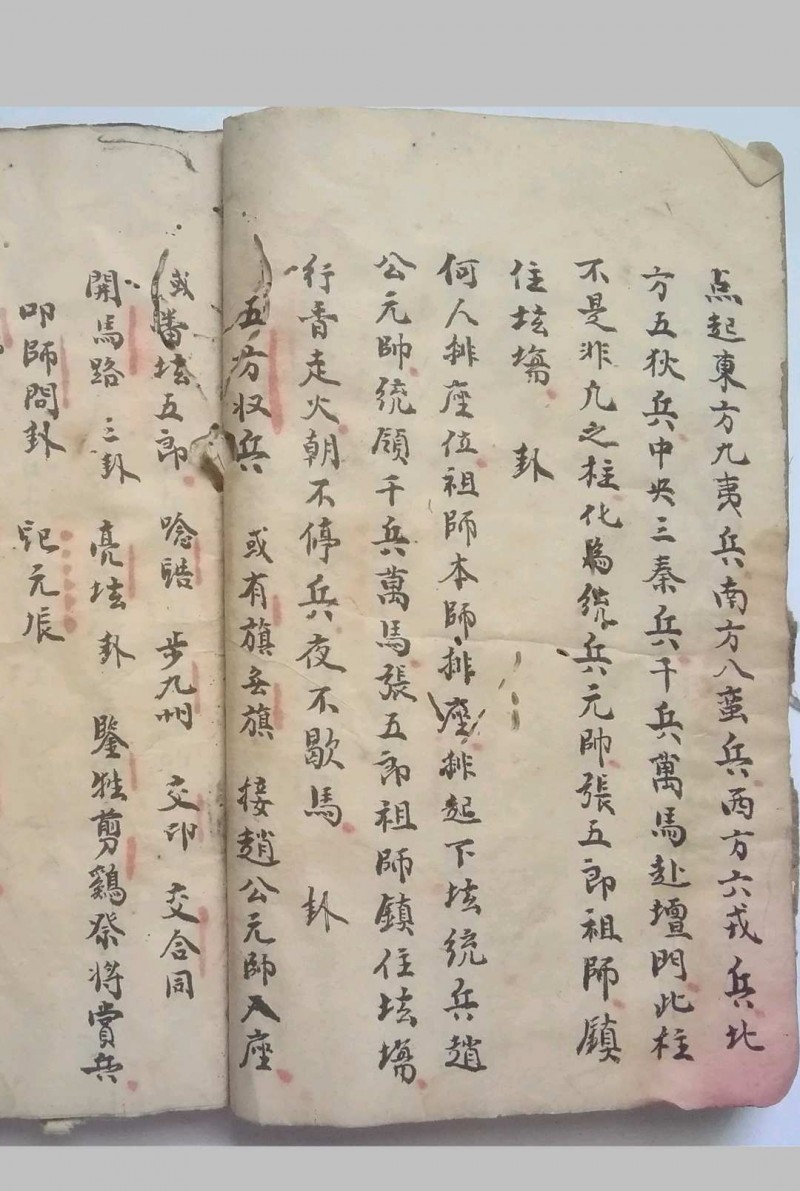 点起東方九夷兵南方八蛮兵西方六戎兵北
方五狄兵中央三秦兵千兵萬馬赴壇門此柱
不是非凡之柱化為統兵元帥張五郎祖師鎮
住垓塲 卦
何人排座位祖師本師排座排起下垓統兵趙
公元帥統領千兵萬馬張五郎祖師鎮住垓塲
行香走火朝不停兵夜不歇馬 卦
五方收兵 或有旗無旗 接趙公元帥入座
或畨垓五郎 唸誥 步九州 交印 交合同
開馬路 三卦 亮垓 卦 鑒牲剪鷄祭將賞兵
叩師問卦 記元辰